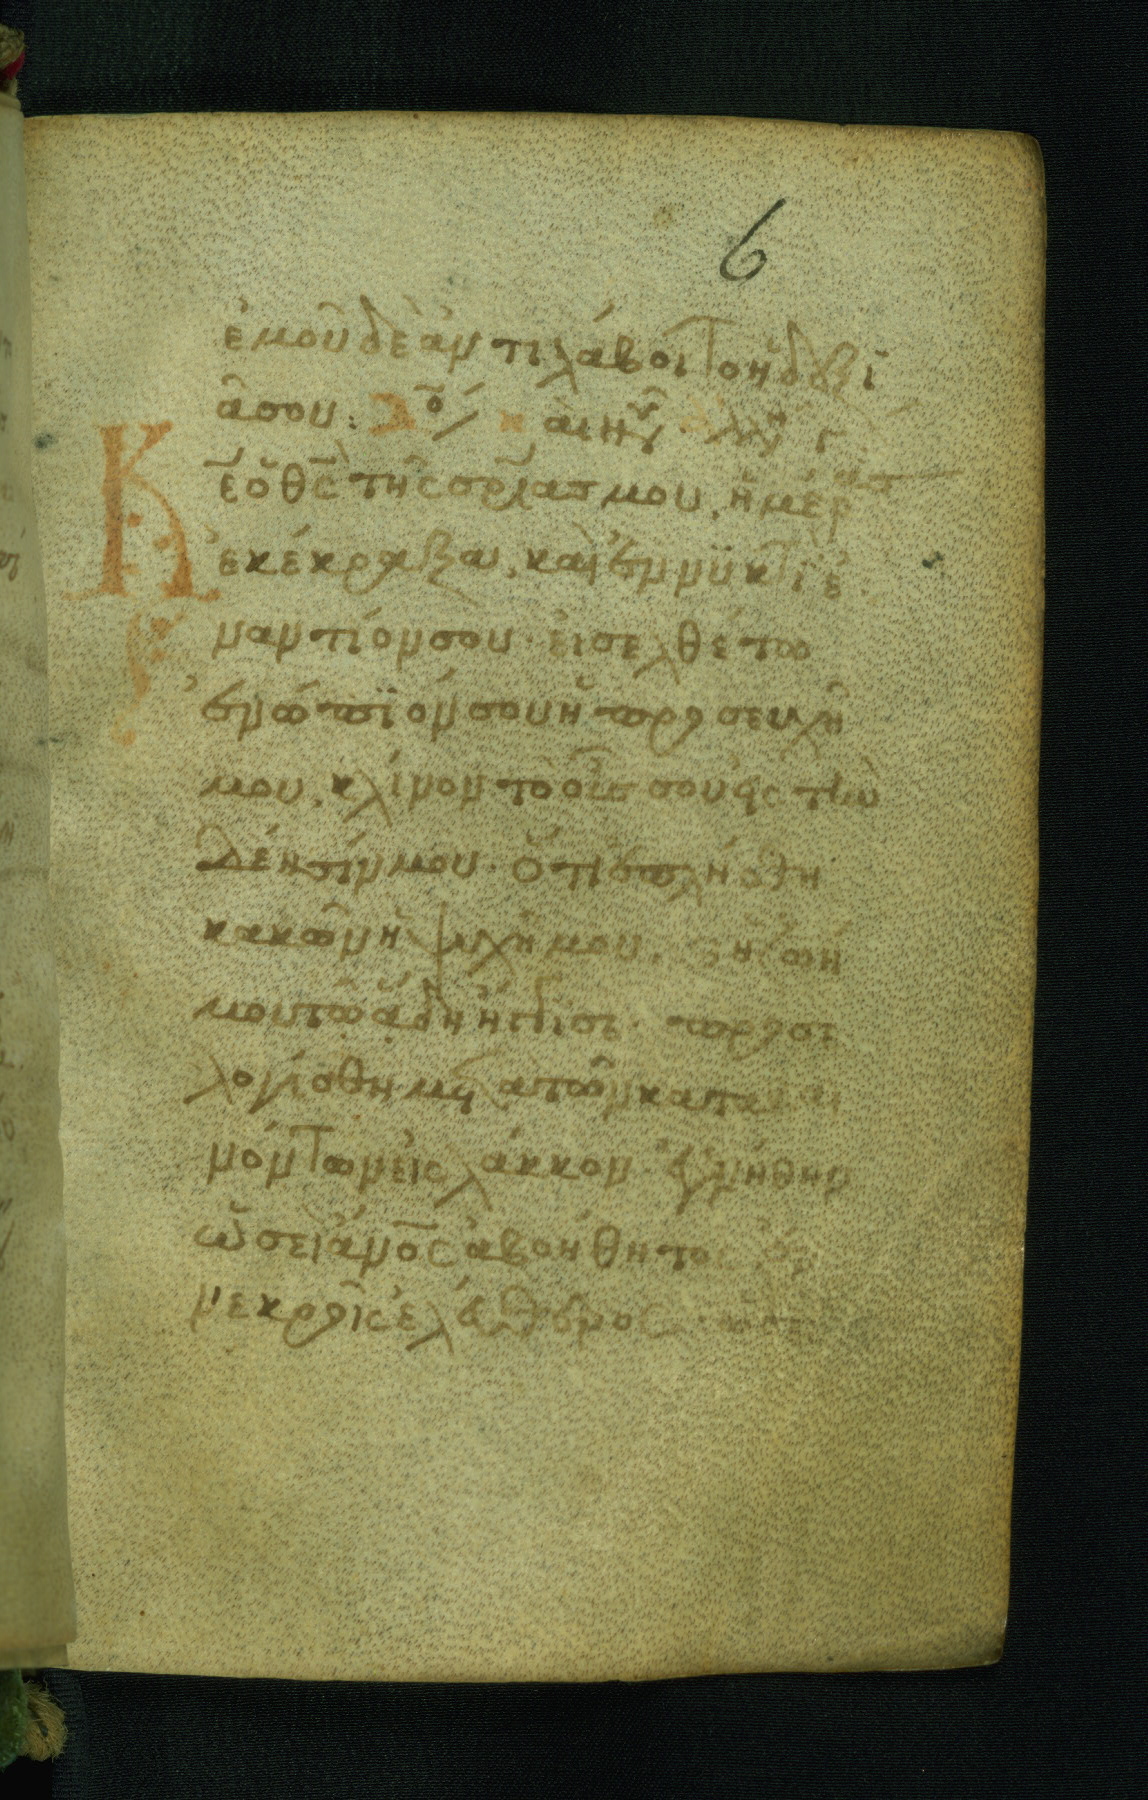 6
ἐμοῦ δὲ ἀντιλάβοιτο ἡ δεξι
ὰ σου: Δο κ αι νυ
Κε ὁ θς τῆς σρίας μου, ἡμέρας
ἐκέκραξα, καὶ ἐν νυκτὶ ἐ
ναντίον σου· εἰσελθέτω
ἐνώπϊόν σου ἡ προσευχή
μου, κλῖνον τὸ οὖς σου εἰς τὴν
δέησίν μου· ὅτι ἐπλήσθη
κακῶν ἡ ψυχή μου, κ ἡ ζωή
μου τῶ ἅδη ἤγγισε· προσε
λογίσθην μετὰ τῶν καταβαι
νόντων εἰς λάκκον· ἐγενήθην
ὡσεὶ ἄνος ἀβοήθητος ἐν
νεκροῖς ἐλεύθερος· ὡσεὶ